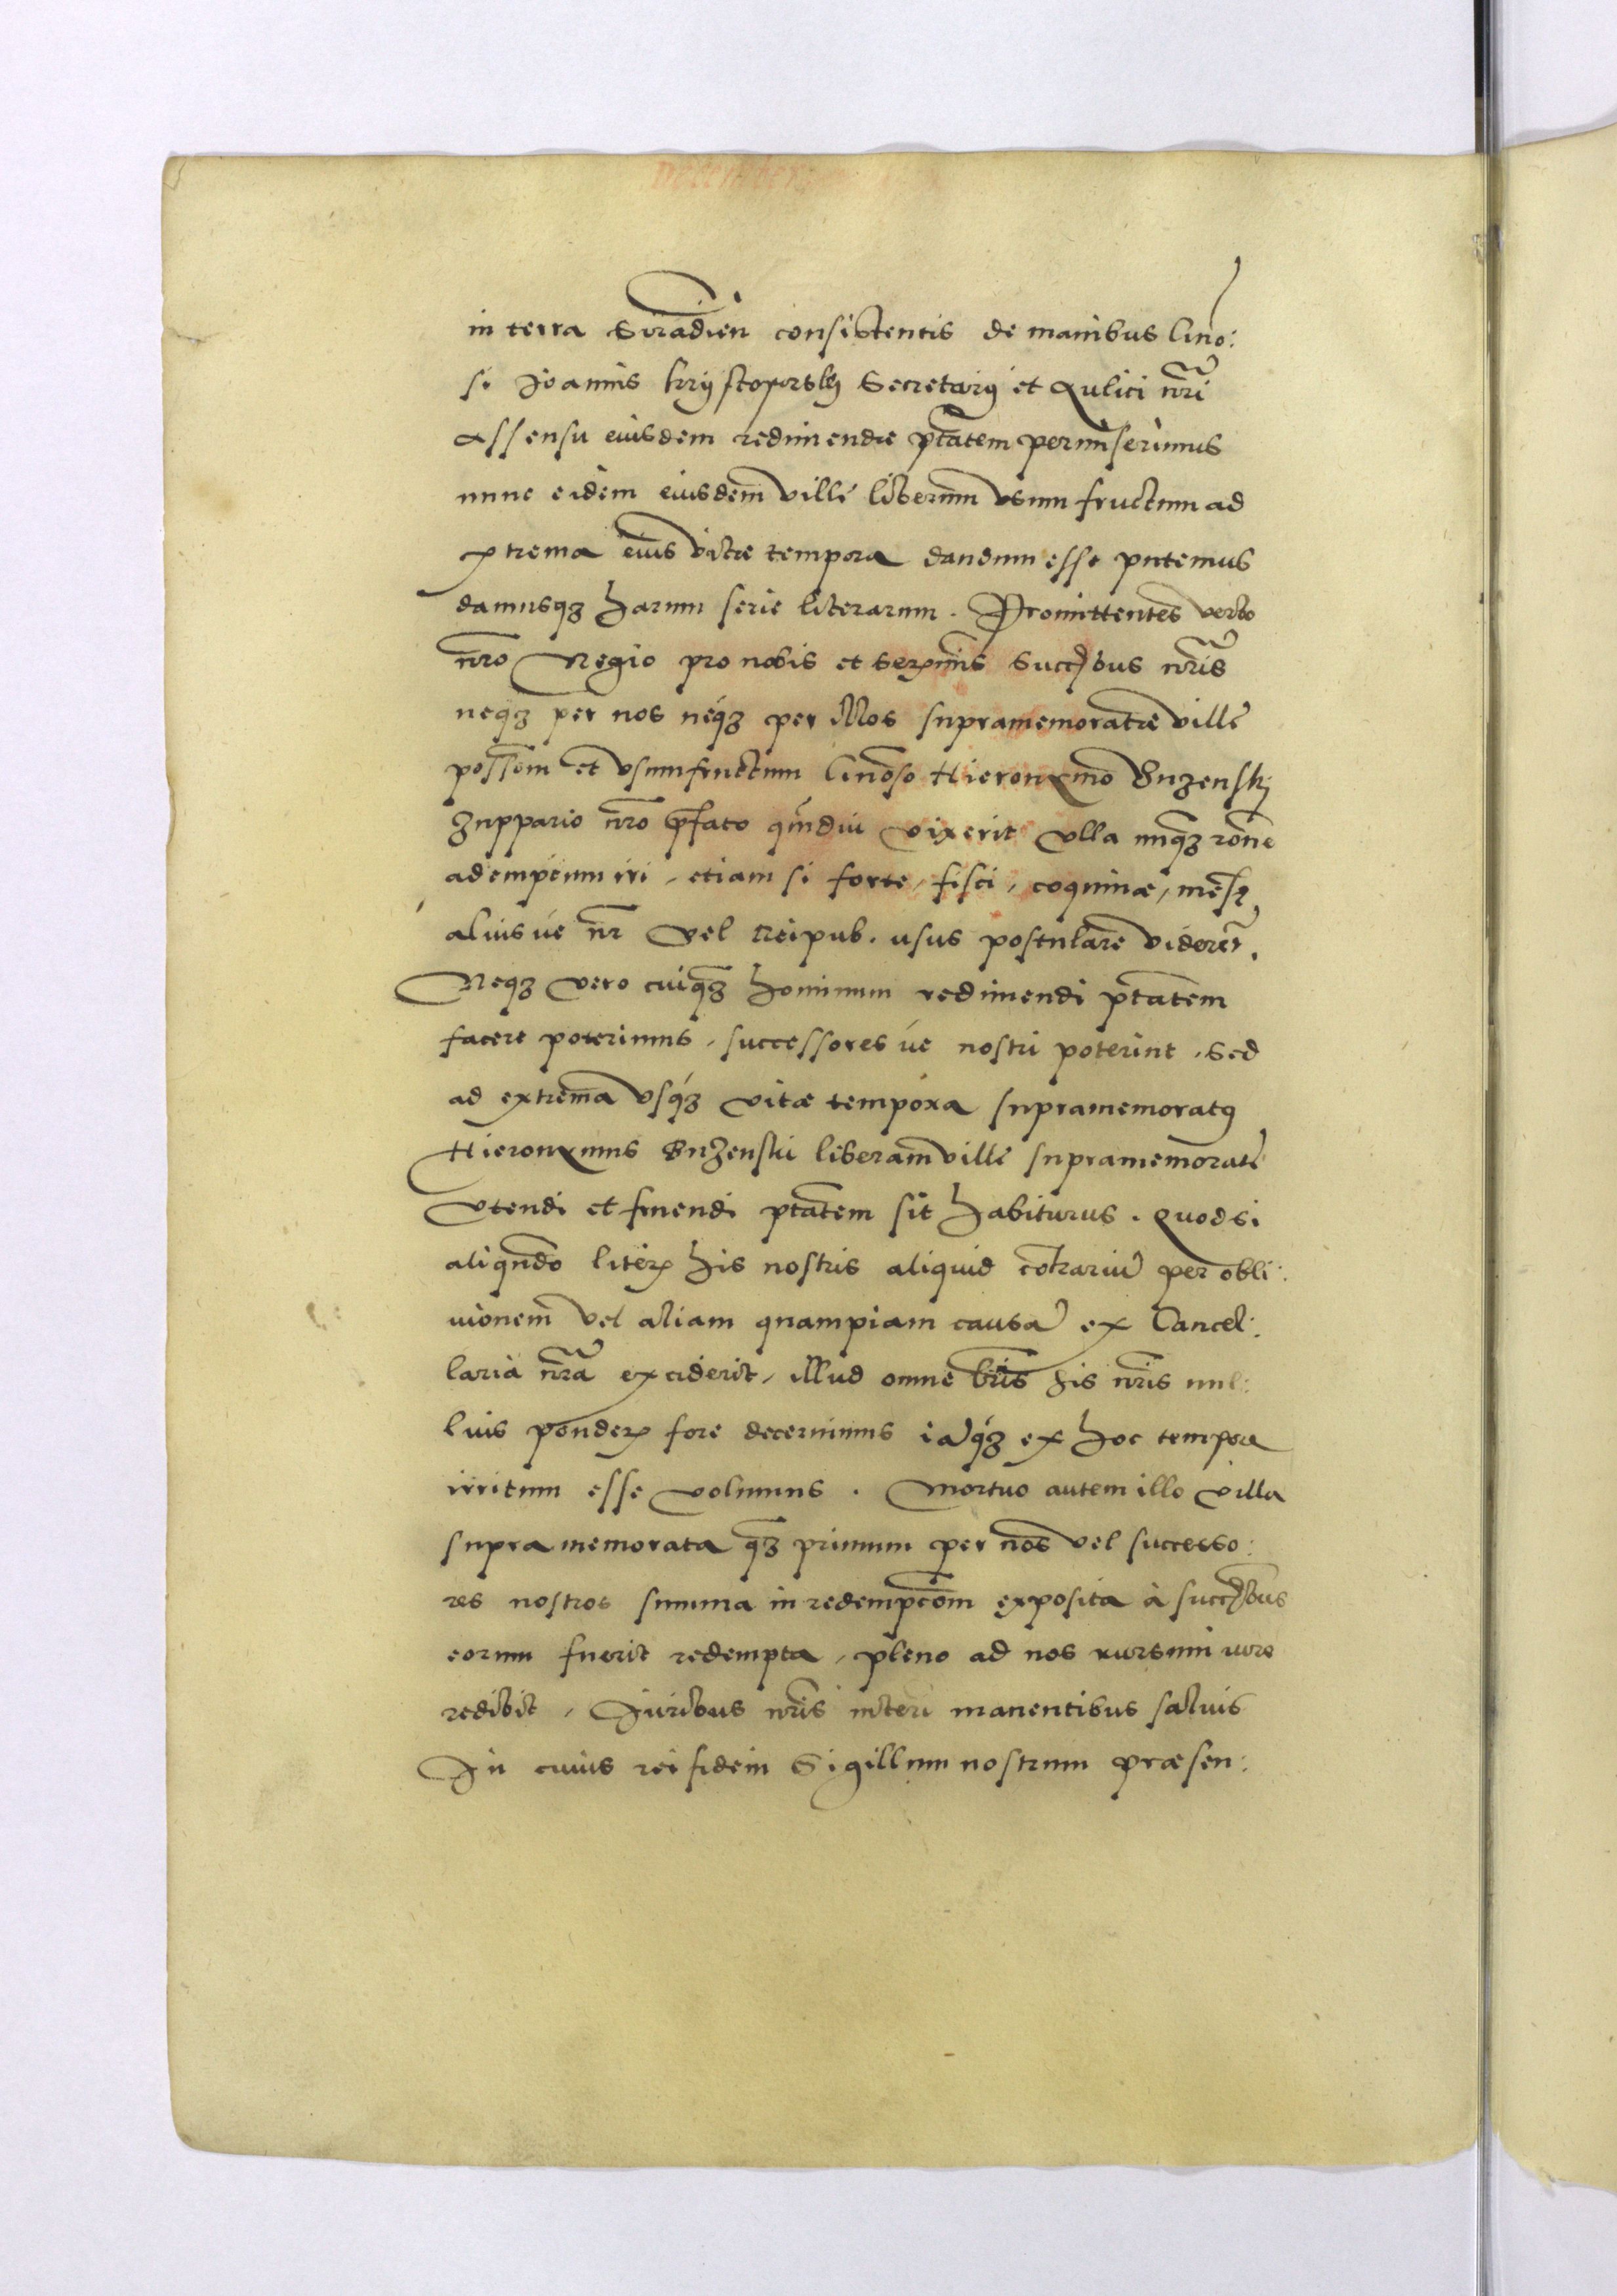 in terra Siradien̄ consistentis de manibus Gn̄o:
si Joannis Krzÿstoporskÿ Secretarÿ et Aulici nr̄i
assensu eiusdem redimendæ ptātem permiserimus
nunc eidem eiusdem villę liberum vsum fructum ad
extrema eius vitæ tempora dandum esse putemus
damusq̢ harum serie literarum. Promittentes verbo
nr̄o Regio pro nobis et Serenmis Succbus nr̄is
neq̢ per nos neq̢ per illos supramemoratæ villę
possem et vsumfructum Gn̄oso Hieronymo Buzenskj
Zuppario nr̄o p̄fato q̄mdiu vixerit vlla vnq̢ rōne
ademptum iri, etiam si forte, fisci, coquinæ, mensę,
aliusúe nr̄ vel Reipub. usus postulare videret̄.
Neq̢ vero cuiq̢ hominum redimendi ptātem
facere poterimus, successores úe nostri poterint, sed
ad extrema vsq̢ vitæ tempora supramemoratq
Hieronymus Buzenski liberam villę supramemoratę
vtendi et fruendi ptātem sit habiturus. Quod si
aliqn̄do literis his nostris aliquid cōtrariū per obli:
uionem vel aliam quampiam causā ex Cancel:
laria nr̄a exciderit, illud omne lr̄is his nr̄is nul:
lius ponderis fore decernimus iāq̢ ex hoc tempore
irritum esse volumus. Mortuo autem illo villa
supramemorata q̢ primum per nos vel successo:
res nostros summa in redempcōm exposita à succbus
eorum fuerit redempta, pleno ad nos rursum iure
redibit, Juribus nr̄is interī manentibus saluis
In cuius rei fidem Sigillum nostrum præsen: